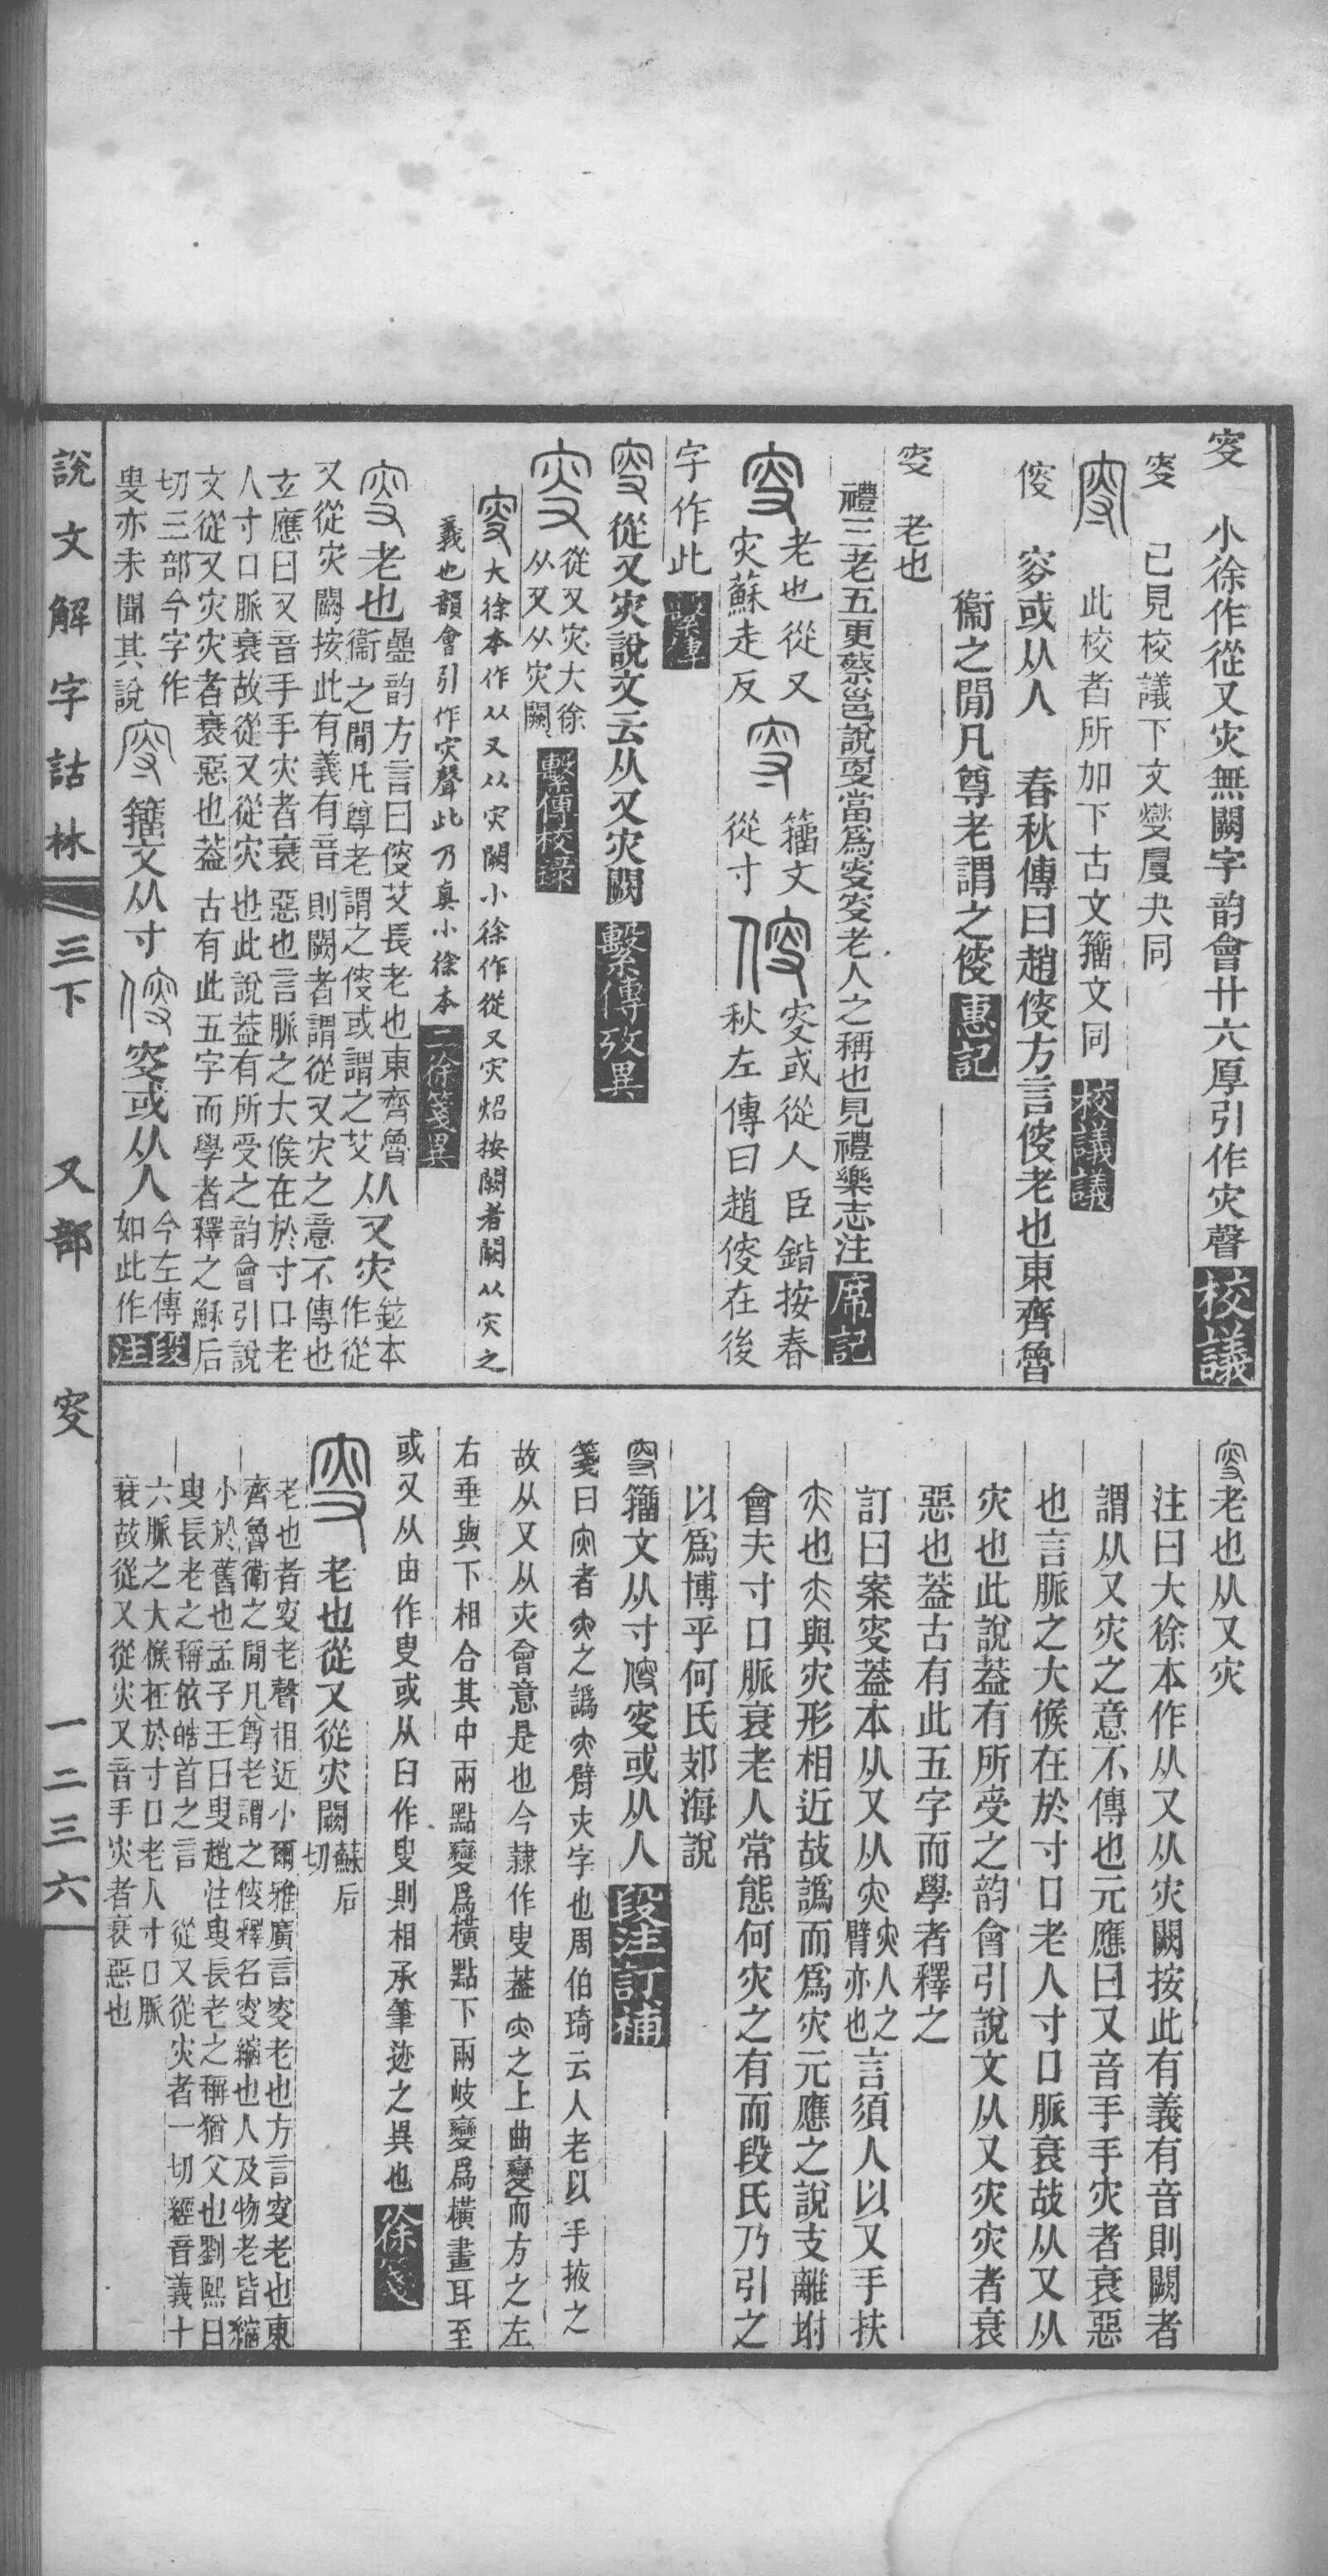 叜　小徐作從又灾無闕字韵會廿六厚引作灾聲　校議
叜　已見校議下文燮厦夬同
此校者所加下古文籀文同　校議議
傁　叜或从人　春秋傳曰趙傁方言傁老也東齊魯
衞之閒凡尊老謂之傁　惠記
叜　老也
禮三老五更蔡邕說叟當爲叜叜老人之稱也見禮樂志注　席記
老也從又
灾蘇走反
籀文
從寸
叜或從人臣鍇按春
秋左傳曰趙傁在後
字作此　繫傳
從又灾說文云从又灾闕　繫傳攷異
從又灾大徐
从又从灾闕　繫傳校錄
大徐本作从又从灾闕小徐作從又灾炤按闕者闕从灾之
義也韻會引作灾聲此乃眞小徐本　二徐箋異
老也
曡韵方言曰傁艾長老也東齊魯
衞之閒凡尊老謂之傁或謂之艾
从又灾
鉉本
作從
又從灾闕按此有義有音則闕者謂從又灾之意不傳也
玄應曰又音手手灾者衰惡也言脈之大候在於寸口老
人寸口脈衰故從又從灾也此說葢有所受之韵會引說
文從又灾灾者衰惡也葢古有此五字而學者釋之穌后
切三部今字作
叟亦未聞其說
籀文从寸
叜或从人
今左傳
如此作　段注
老也从又灾
注曰大徐本作从又从灾闕按此有義有音則闕者
謂从又灾之意不傳也元應曰又音手手灾者衰惡
也言脈之大候在於寸口老人寸口脈衰故从又从
灾也此說葢有所受之韵會引說文从又灾灾者衰
惡也葢古有此五字而學者釋之
訂曰案叜葢本从又从灾
人之
臂亦也
言須人以又手扶
也與灾形相近故譌而爲灾元應之說支離坿
會夫寸口脈衰老人常態何灾之有而段氏乃引之
以爲博乎何氏郊海說
籀文从寸叜或从人　段注訂補
箋曰者之譌臂夾字也周伯琦云人老以手掖之
故从又从夾會意是也今隷作叟葢之上曲變而方之左
右垂與下相合其中兩點變爲橫點下兩岐變爲橫畫耳至
或又从由作叟或从臼作叟則相承筆迹之異也　徐箋
老也從又從灾闕
蘇后
切
老也者叜老聲相近小爾雅廣言叜老也方言叜老也東
齊魯衛之閒凡尊老謂之傁釋名叜縮也人及物老皆縮
小於舊也孟子王曰叟趙注叟長老之稱猶父也劉熙曰
叟長老之稱依皓首之言　從又從灾者一切經音義十
六脈之大候在於寸口老人寸口脈
衰故從又從灾又音手灾者衰惡也
說文解字詁林　三下　又部　叜　一二三六